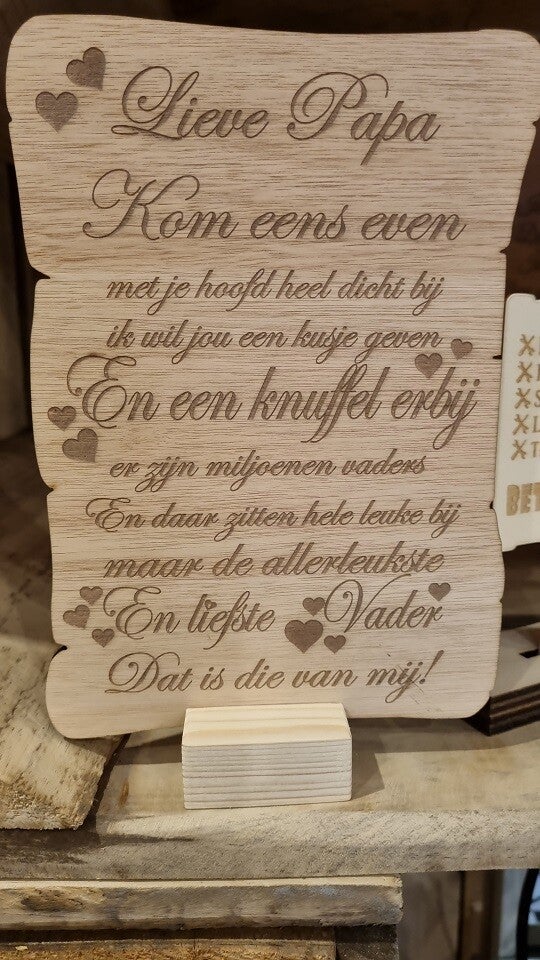 Lieve Papa
Kom eens even
met je hoofd heel dicht bij
ik wil jou een kusje geven
En een knuffel erbij
er zijn miljoenen vaders
En daar zitten hele leuke bij
maar de allerleukste
En liefste Vader
Dat is die van mij!
BET